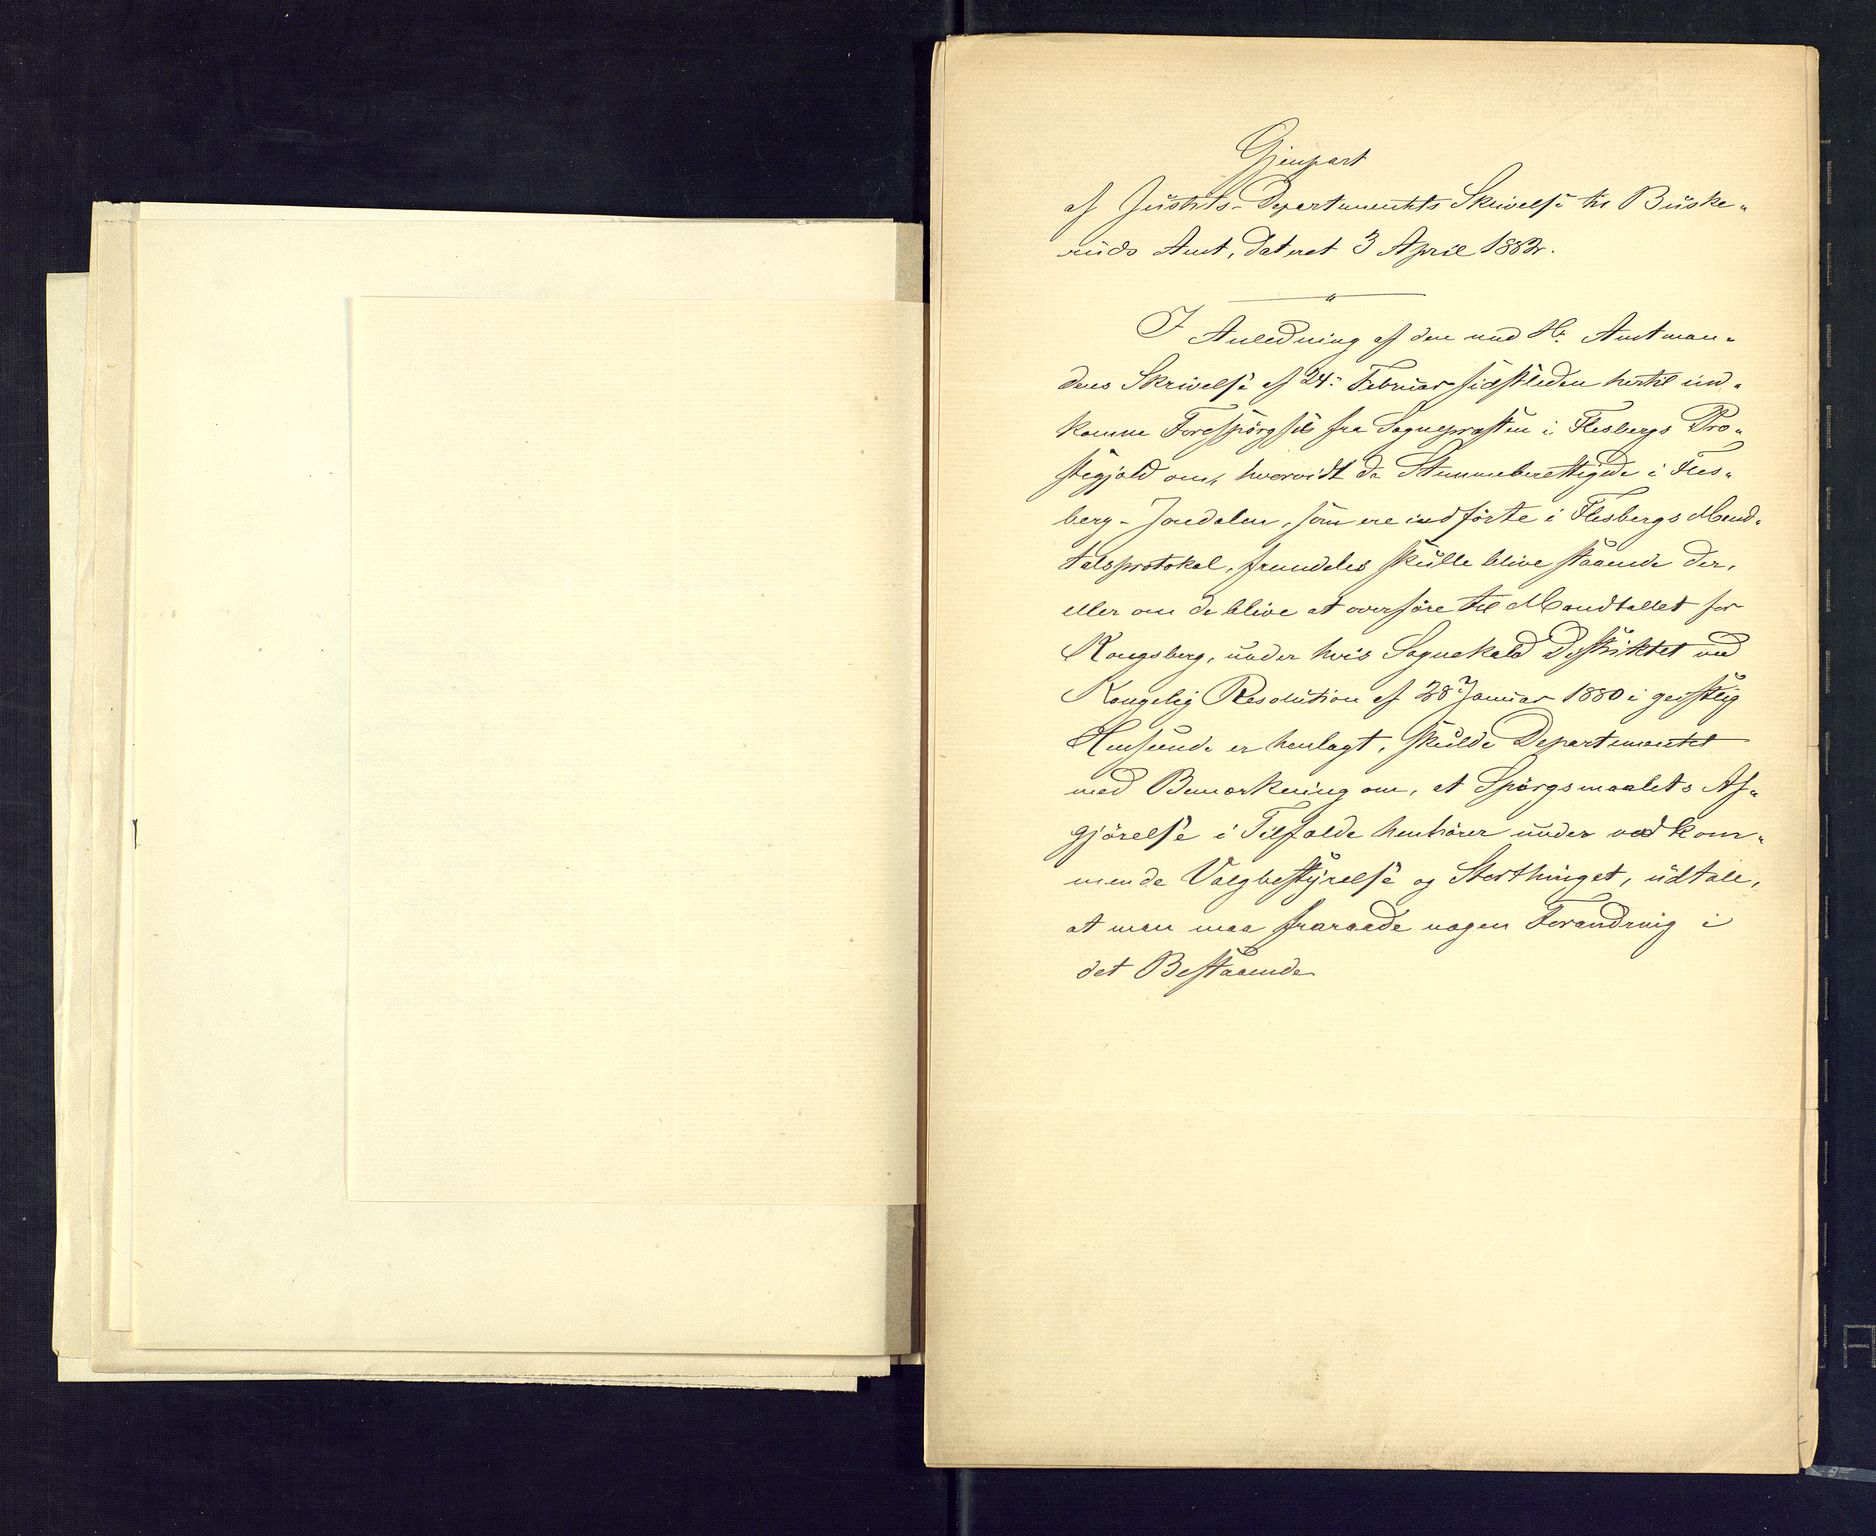 Gjenpart
af Justits-Departementets Skrivelse til Buske-
ruds Amt, dateret 3 April 1882.
I Anledning af den med Hr. Amtman-
dens Skrivelse af 24. Februar sidstleden hertil ind-
komne Forespørgsel fra Sognepræsten i Flesbergs Præ-
stegjeld om, hvorvidt de Stemmeberettigede i Fles-
berg-Jondalen, som ere indførte i Flesbergs Mand-
talsprotokol, fremdeles skulle blive staaende der,
eller om de blive at overføre til Mandtallet for
Kongsberg, under hvis Sognekald Distriktet ved
Kongelig Resolution af 28. Januar 1880 i geistlig
Henseende er henlagt, skulde Departementet
med Bemærkning om, at Spørgsmaalets Af-
gjørelse i Tilfælde henhører under vedkom-
mende Valgbestyrelse og Storthinget, udtale,
at man maa fraraade nogen Forandring i
det Bestaaende